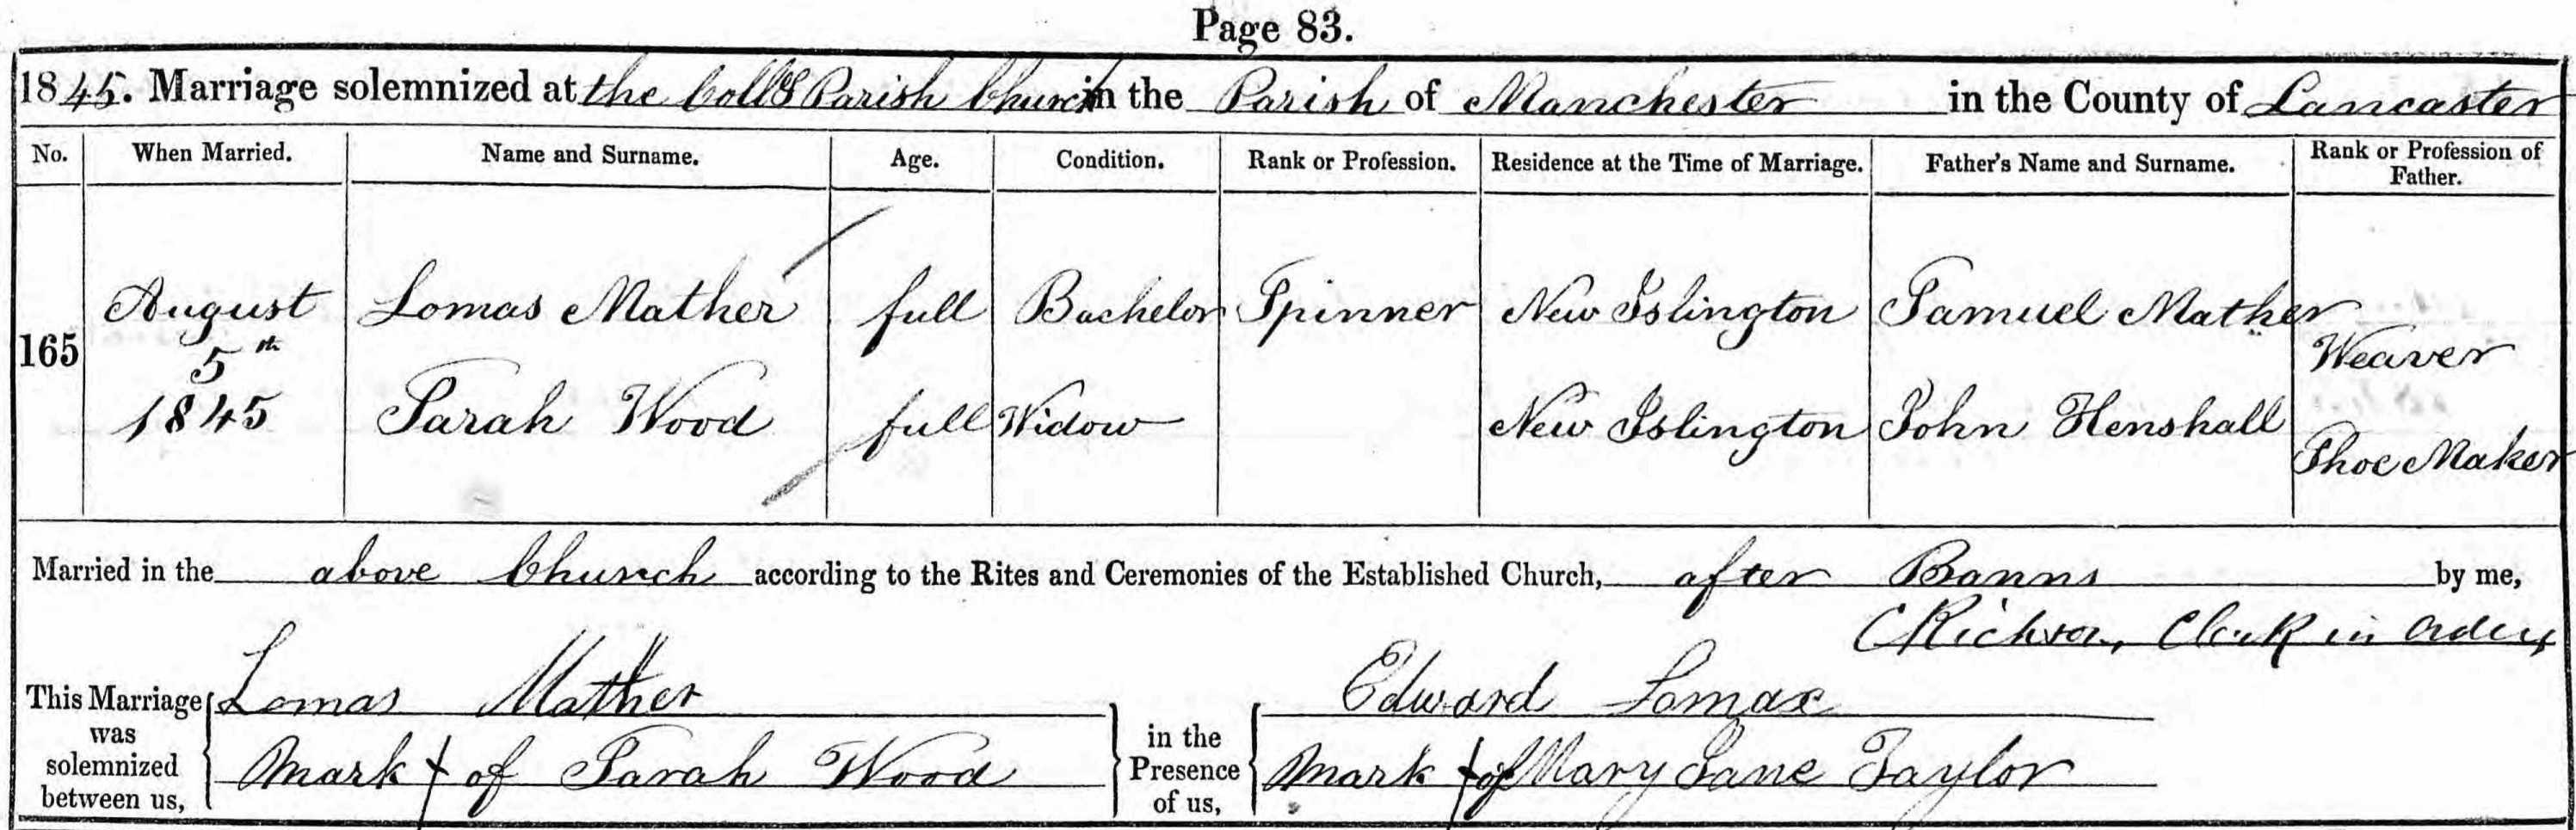 Page 83.
1845. Marriage solemnized at the Coll & Parish Church in the Parish of Manchester in the County of Lancaster
No. When Married. Name and Surname. Age. Condition. Rank or Profession. Residence at the Time of Marriage. Father's Name and Surname. Rank or Profession of Father.
165 August 5th 1845 Lomas Mather full Bachelor Spinner New Islington Samuel Mather Weaver
Sarah Wood full Widow New Islington John Henshall Shoe Maker
Married in the above Church according to the Rites and Ceremonies of the Established Church, after Banns by me,
C Richson, Clerk in Orders
This Marriage was solemnized between us, Lomas Mather
Mark X of Sarah Wood
in the Presence of us, Edward Lomax
Mark X of Mary Jane Taylor